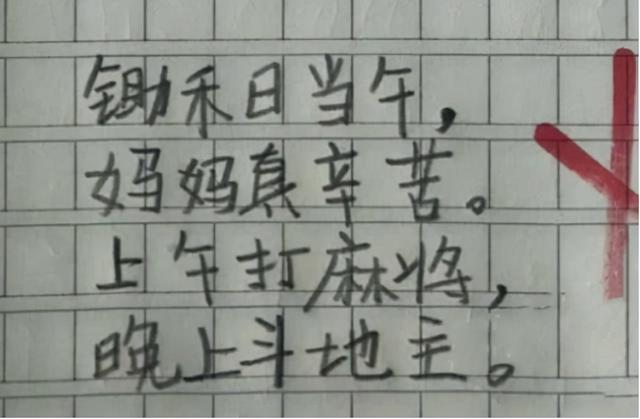 锄禾日当午，
妈妈真辛苦。
上午打麻将，
晚上斗地主。